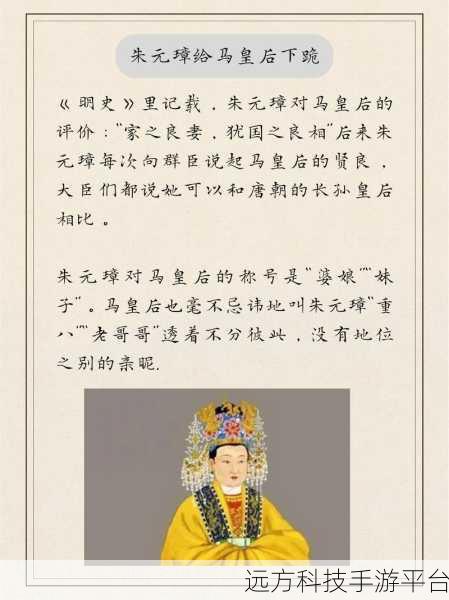 朱元璋给马皇后下跪
《明史》里记载，朱元璋对马皇后的
评价："家之良妻，犹国之良相"后来朱
元璋每次向群臣说起马皇后的贤良，
大臣们都说她可以和唐朝的长孙皇后
相比。
朱元璋对马皇后的称号是"婆娘""妹
子"。马皇后也毫不忌讳地叫朱元璋"重
八""老哥哥"透着不分彼此，没有地位
之别的亲昵.
远方科技手游平台